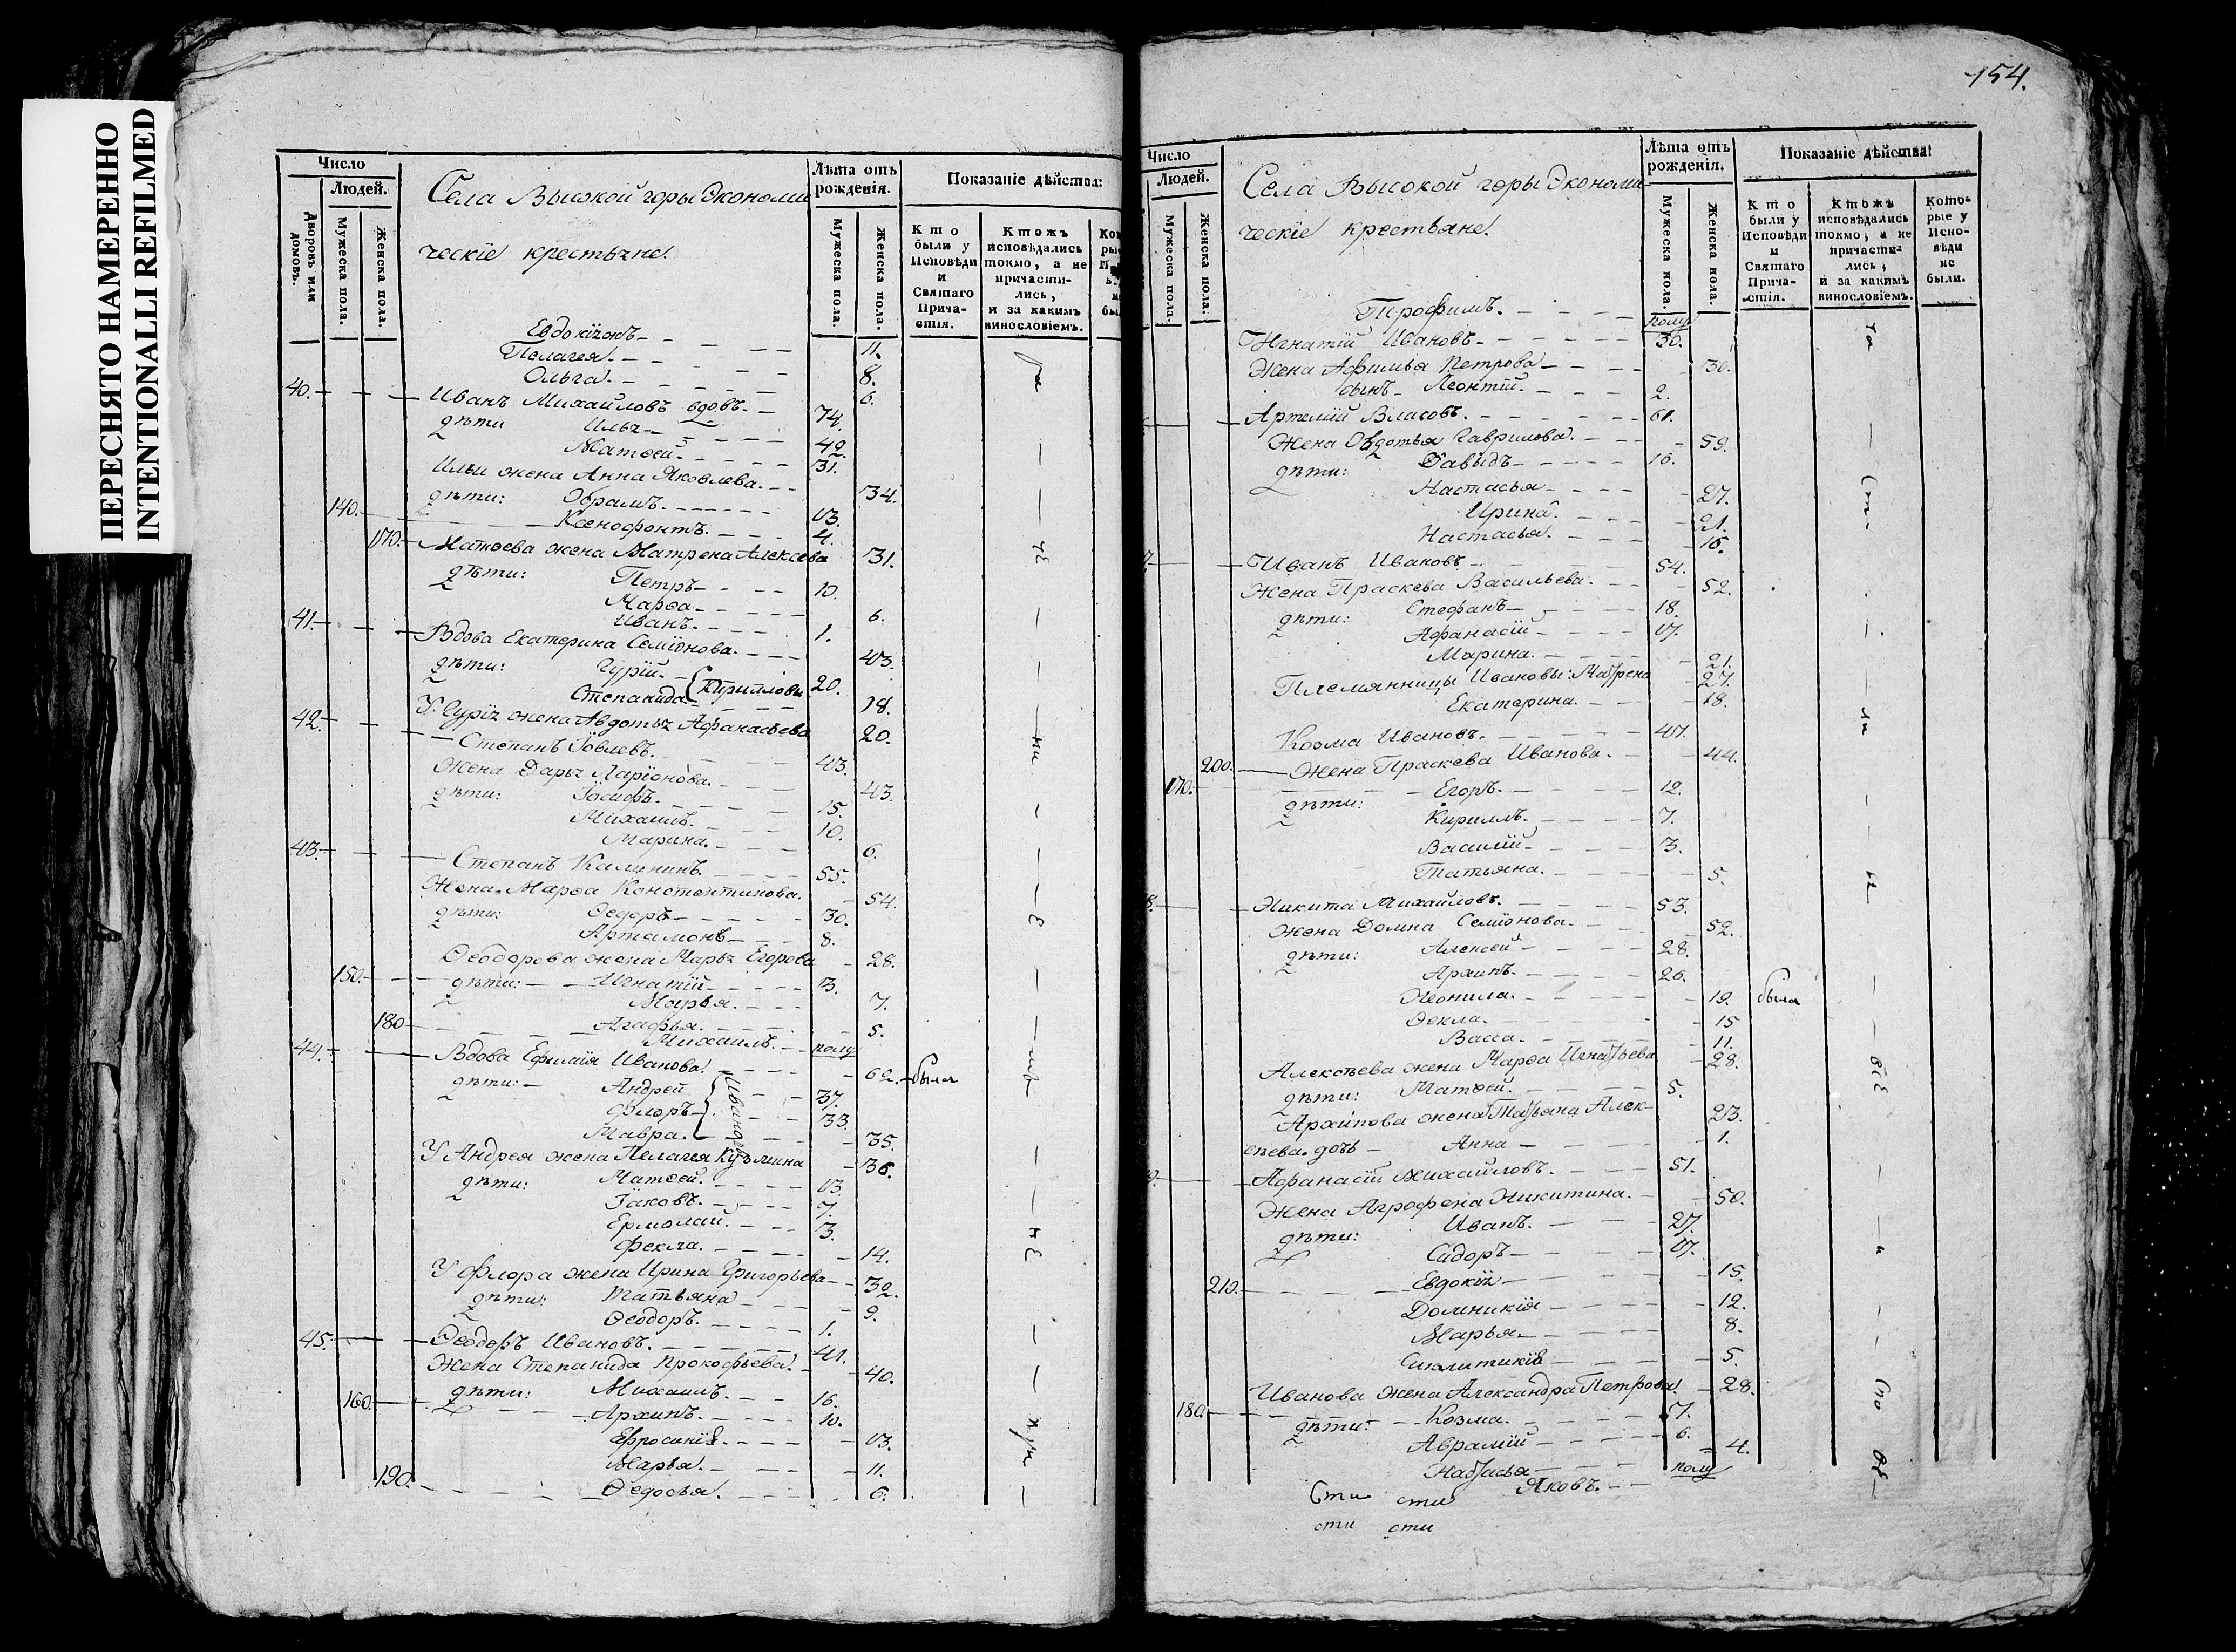 ПЕРЕСНЯТО НАМЕРЕННО
INTENTIONALLI REFILMED
Число
Людей.
Дворовъ или домовъ.
Мужеска пола.
Женска пола.
Села Высокой горы Экономи
ческіе крестьяне.
Лѣта отъ рожденія.
Мужеска пола.
Женска пола.
Показаніе дѣйства:
Кто были у Исповѣди и Святаго Прича-стія.
Ктожъ исповѣдались токмо, а не причасти-лись, и за какимъ винословіемъ.
11.
Пелагея. 8.
Ольга. 6.
40. Иванъ Михайловъ вдовъ. 74.
дѣти Илья 42.
Матѳей 31.
Ильи жена Анна Яковлева. 34.
дѣти: Обрамъ. 13.
140. Ксенофонтъ. 4.
170. Матѳева жена Матрена Алексева 31.
дѣти: Петръ 10.
Марѳа 6.
Иванъ. 1.
41. Вдова Екатерина Семіонова. 43.
дѣти: Гурій. 20.
Степанида 18.
У Гурія жена Авдотья Афанасьева 20.
42. Степанъ Іовлевъ. 43.
Жена Дарья Ларіонова. 43.
дѣти: Іосифъ. 15.
Михаилъ. 10.
Марина. 6.
43. Степанъ Калининъ. 55.
Жена Марѳа Константинова. 54.
дѣти: Ѳедоръ 30.
Артамонъ 8.
Ѳеодорова жена Марья Егорова 28.
150. дѣти: Игнатій 3.
Марья. 7.
180 Агафья. 5.
Михаилъ. полу
44. Вдова Ефимія Иванова. 62. была
дѣти: Андрей 37.
Флоръ 33.
Мавра. 35.
Ивановы
У Андрея жена Пелагея Кузмина 36.
дѣти: Матѳей. 13.
Іаковъ. 7.
Ермолай. 3.
Фекла. 14.
У Флора жена Ирина Григорьева 32.
дѣти: Татьяна 9.
Ѳеодоръ. 1.
45. Ѳеодоръ Ивановъ. 41.
Жена Степанида Прокофьева. 40.
дѣти: Михаилъ. 16.
160. Архипъ. 10.
Ефросинія 13.
Марья. 11.
190. Ѳедосья. 6.
154.
Число
Людей.
Мужеска пола.
Женска пола.
Села Высокой горы Экономи-
ческіе крестьяне.
Лѣта отъ рожденія.
Мужеска пола.
Женска пола.
Показаніе дѣйства!
Кто были у Исповѣди и Святаго Прича-стія.
Ктожъ исповѣдались токмо, а не причасти-лись, и за какимъ винословіемъ.
Кото-рые у Испо-вѣди не были.
Трофимъ. полу
Игнатій Ивановъ 30.
Жена Афимья Петрова 30.
сынъ Леонтій. 2.
Артемій Власовъ. 61.
Жена Овдотья Гаврилова. 59.
дѣти: Давыдъ 16.
Настасья 27.
Ирина. 21.
Настасья. 16.
Иванъ Ивановъ 54.
Жена Праскева Васильева. 52.
дѣти: Стефанъ 18.
Афанасій 17.
Марина. 21.
Племянницы Ивановы: Матрена 27.
Екатерина. 18.
Козма Ивановъ. 47.
200. Жена Праскева Иванова. 44.
170. дѣти: Егоръ. 12.
Кириллъ. 7.
Василій 3.
Татьяна. 5.
8. Никита Михайловъ. 53.
Жена Домна Семіонова. 52.
дѣти: Алексей 28.
Архипъ. 26.
Неонила. 19. была
Ѳекла. 15
Васса 11.
Алексѣева жена Марѳа Игнатьева 28.
дѣти: Матѳей. 5.
Архипова жена Татьяна Алек- 23.
сѣева. дочь Анна 1.
9. Афанасій Михайловъ. 51.
Жена Агрофена Никитина. 50.
дѣти: Иванъ. 27.
Сидоръ 17.
210. Евдокія 15.
Домникія 12.
Марья 8.
5.
Иванова жена Александра Петрова. 28.
180. дѣти: Козма. 7.
Аврамій 6.
Настасья 4.
Яковъ. полу
Сти сти
сти сти